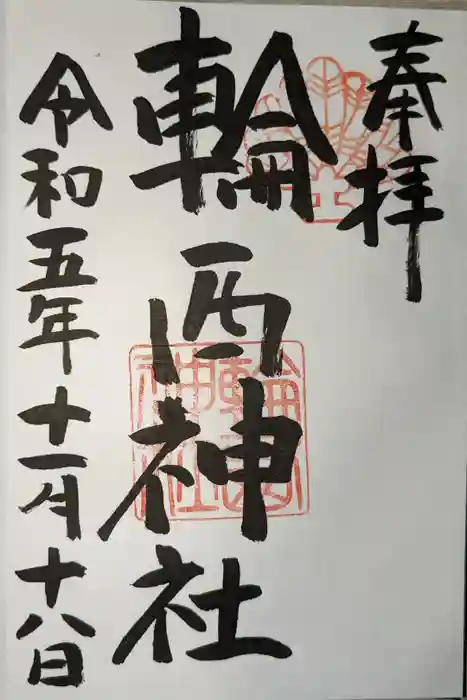 奉拝
輪西神社
令和五年十一月十八日
輪西
神社